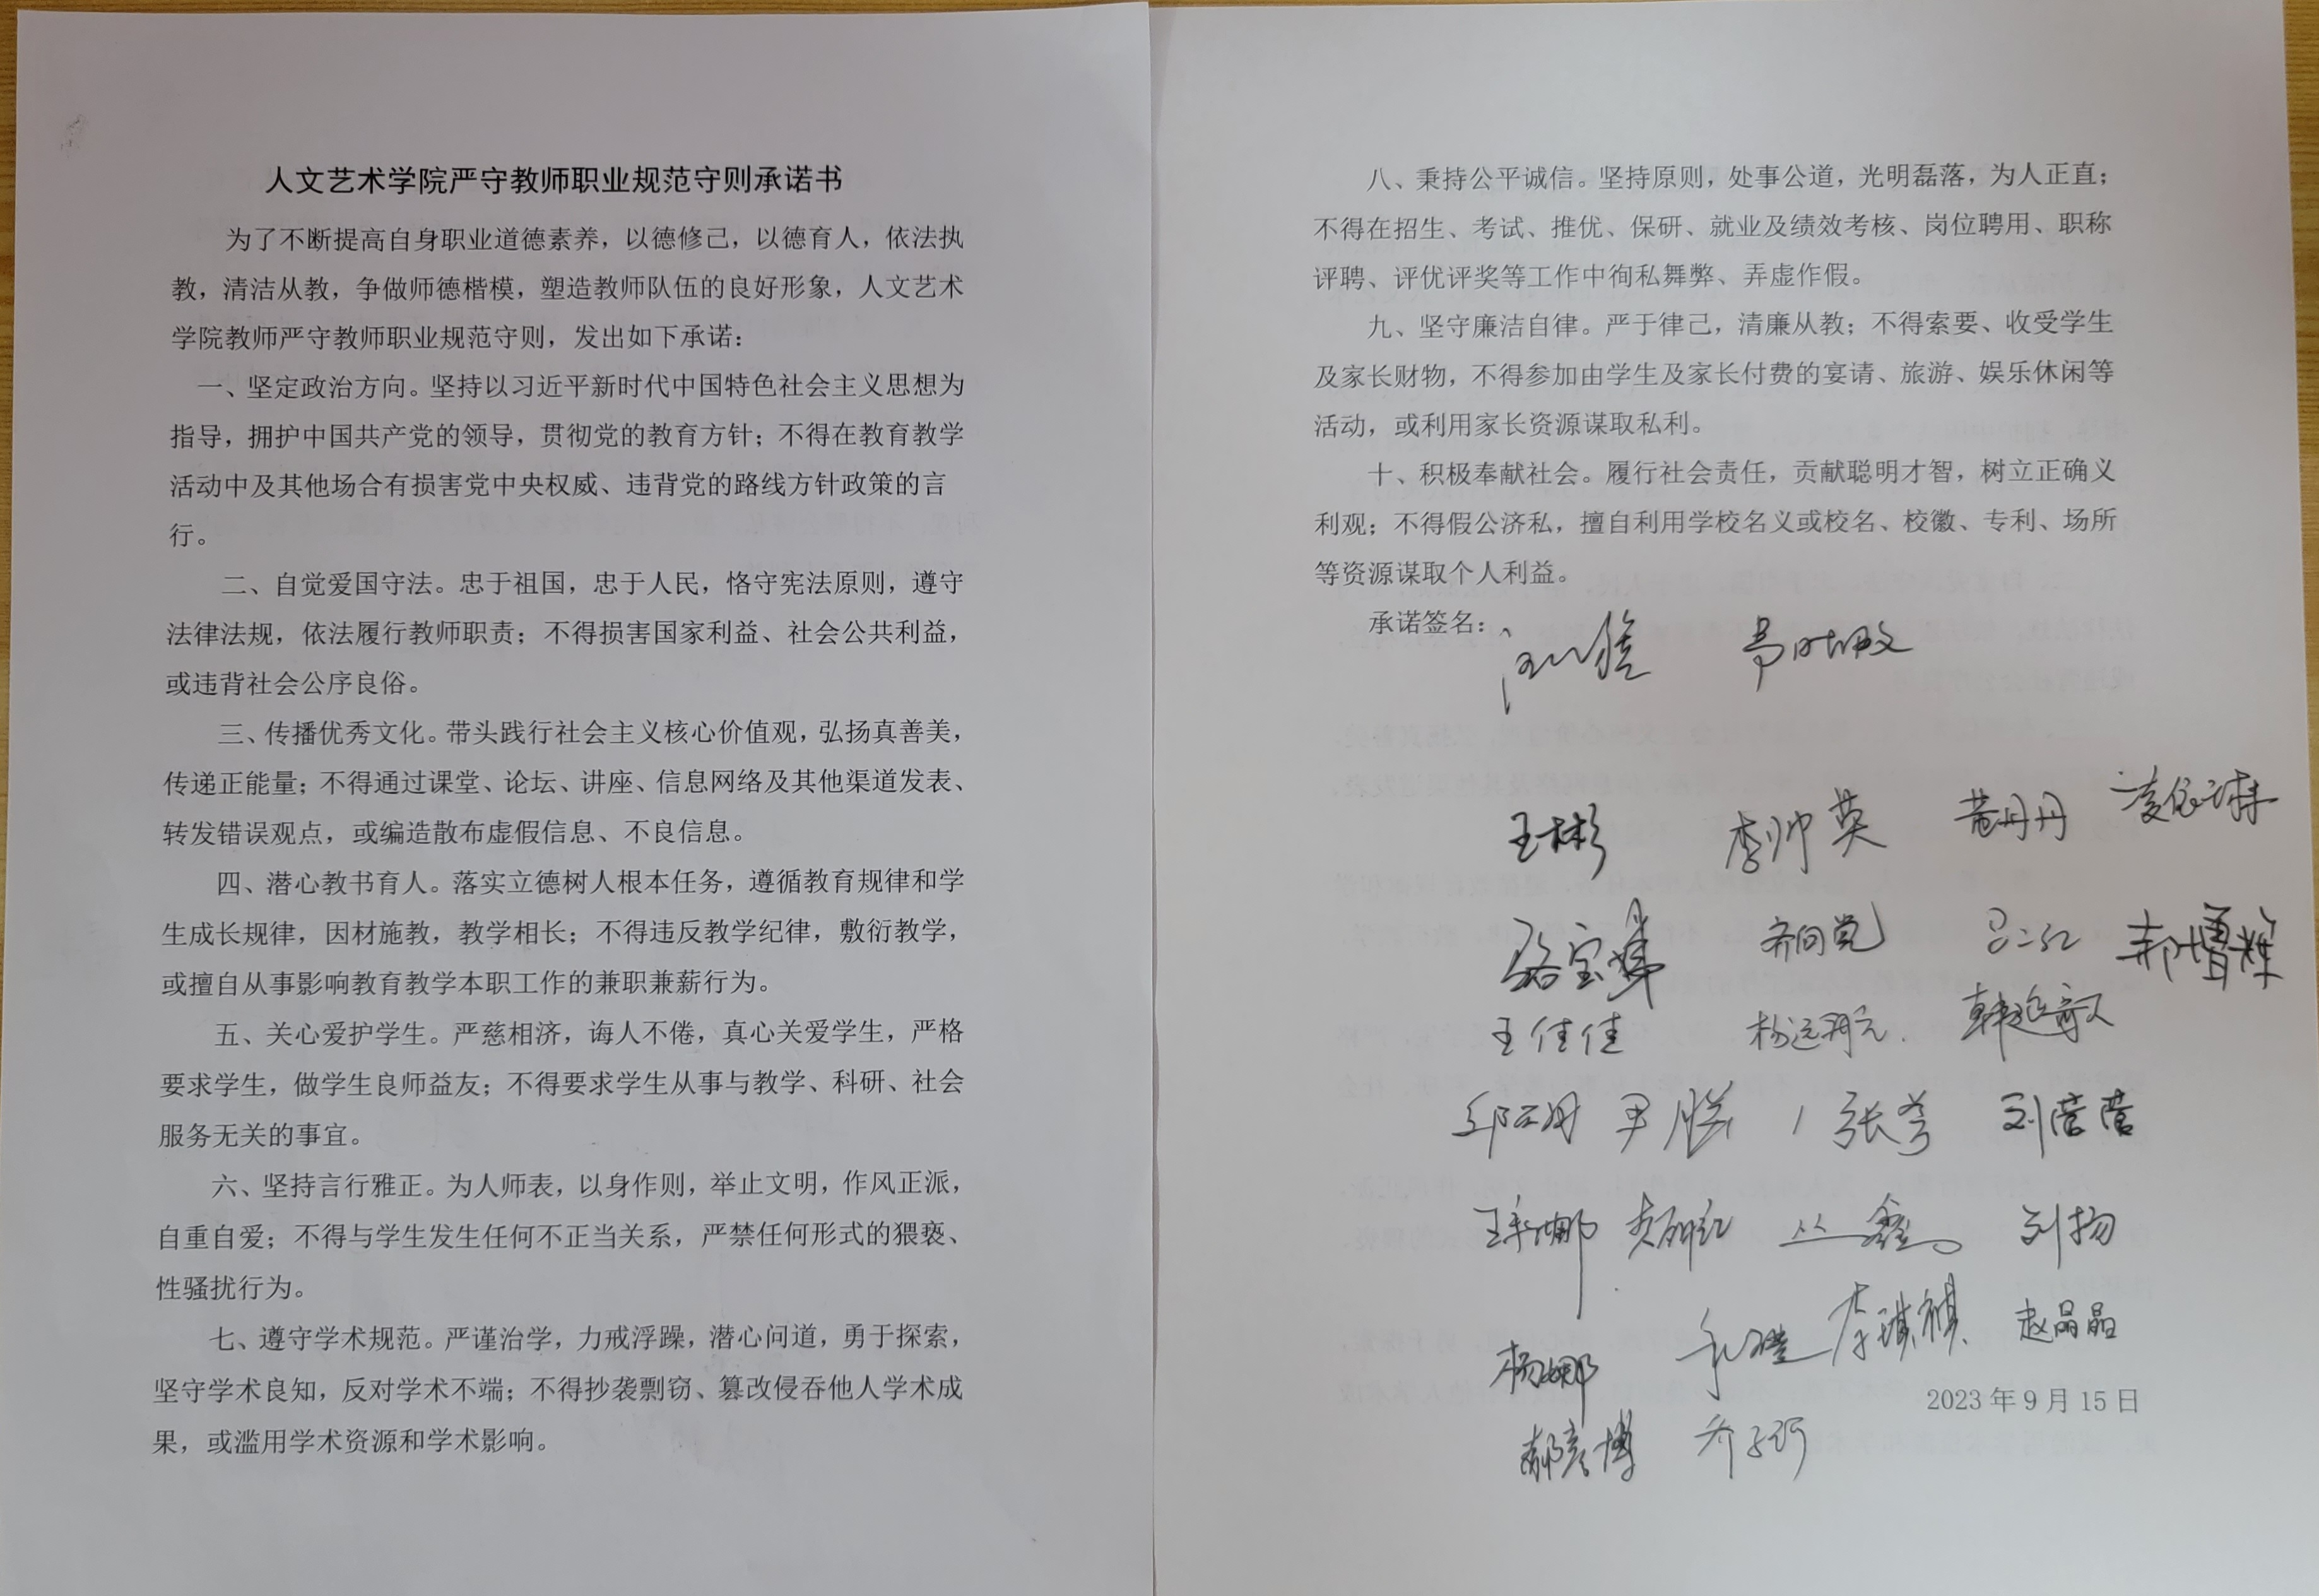 人文艺术学院严守教师职业规范守则承诺书
为了不断提高自身职业道德素养，以德修己，以德育人，依法执
教，清洁从教，争做师德楷模，塑造教师队伍的良好形象，人文艺术
学院教师严守教师职业规范守则，发出如下承诺：
一、坚定政治方向。坚持以习近平新时代中国特色社会主义思想为
指导，拥护中国共产党的领导，贯彻党的教育方针；不得在教育教学
活动中及其他场合有损害党中央权威、违背党的路线方针政策的言
行。
二、自觉爱国守法。忠于祖国，忠于人民，恪守宪法原则，遵守
法律法规，依法履行教师职责；不得损害国家利益、社会公共利益，
或违背社会公序良俗。
三、传播优秀文化。带头践行社会主义核心价值观，弘扬真善美，
传递正能量；不得通过课堂、论坛、讲座、信息网络及其他渠道发表、
转发错误观点，或编造散布虚假信息、不良信息。
四、潜心教书育人。落实立德树人根本任务，遵循教育规律和学
生成长规律，因材施教，教学相长；不得违反教学纪律，敷衍教学，
或擅自从事影响教育教学本职工作的兼职兼薪行为。
五、关心爱护学生。严慈相济，诲人不倦，真心关爱学生，严格
要求学生，做学生良师益友；不得要求学生从事与教学、科研、社会
服务无关的事宜。
六、坚持言行雅正。为人师表，以身作则，举止文明，作风正派，
自重自爱；不得与学生发生任何不正当关系，严禁任何形式的猥亵、
性骚扰行为。
七、遵守学术规范。严谨治学，力戒浮躁，潜心问道，勇于探索，
坚守学术良知，反对学术不端；不得抄袭剽窃、篡改侵吞他人学术成
果，或滥用学术资源和学术影响。
八、秉持公平诚信。坚持原则，处事公道，光明磊落，为人正直；
不得在招生、考试、推优、保研、就业及绩效考核、岗位聘用、职称
评聘、评优评奖等工作中徇私舞弊、弄虚作假。
九、坚守廉洁自律。严于律己，清廉从教；不得索要、收受学生
及家长财物，不得参加由学生及家长付费的宴请、旅游、娱乐休闲等
活动，或利用家长资源谋取私利。
十、积极奉献社会。履行社会责任，贡献聪明才智，树立正确义
利观；不得假公济私，擅自利用学校名义或校名、校徽、专利、场所
等资源谋取个人利益。
承诺签名：
王彬 李帅英 黄丹丹
齐向党 吕二红 郝增辉
王佳佳
张 刘蕾蕾
丛鑫 刘扬
杨娜 李琪祺 赵晶晶
2023年9月15日
郝彦博